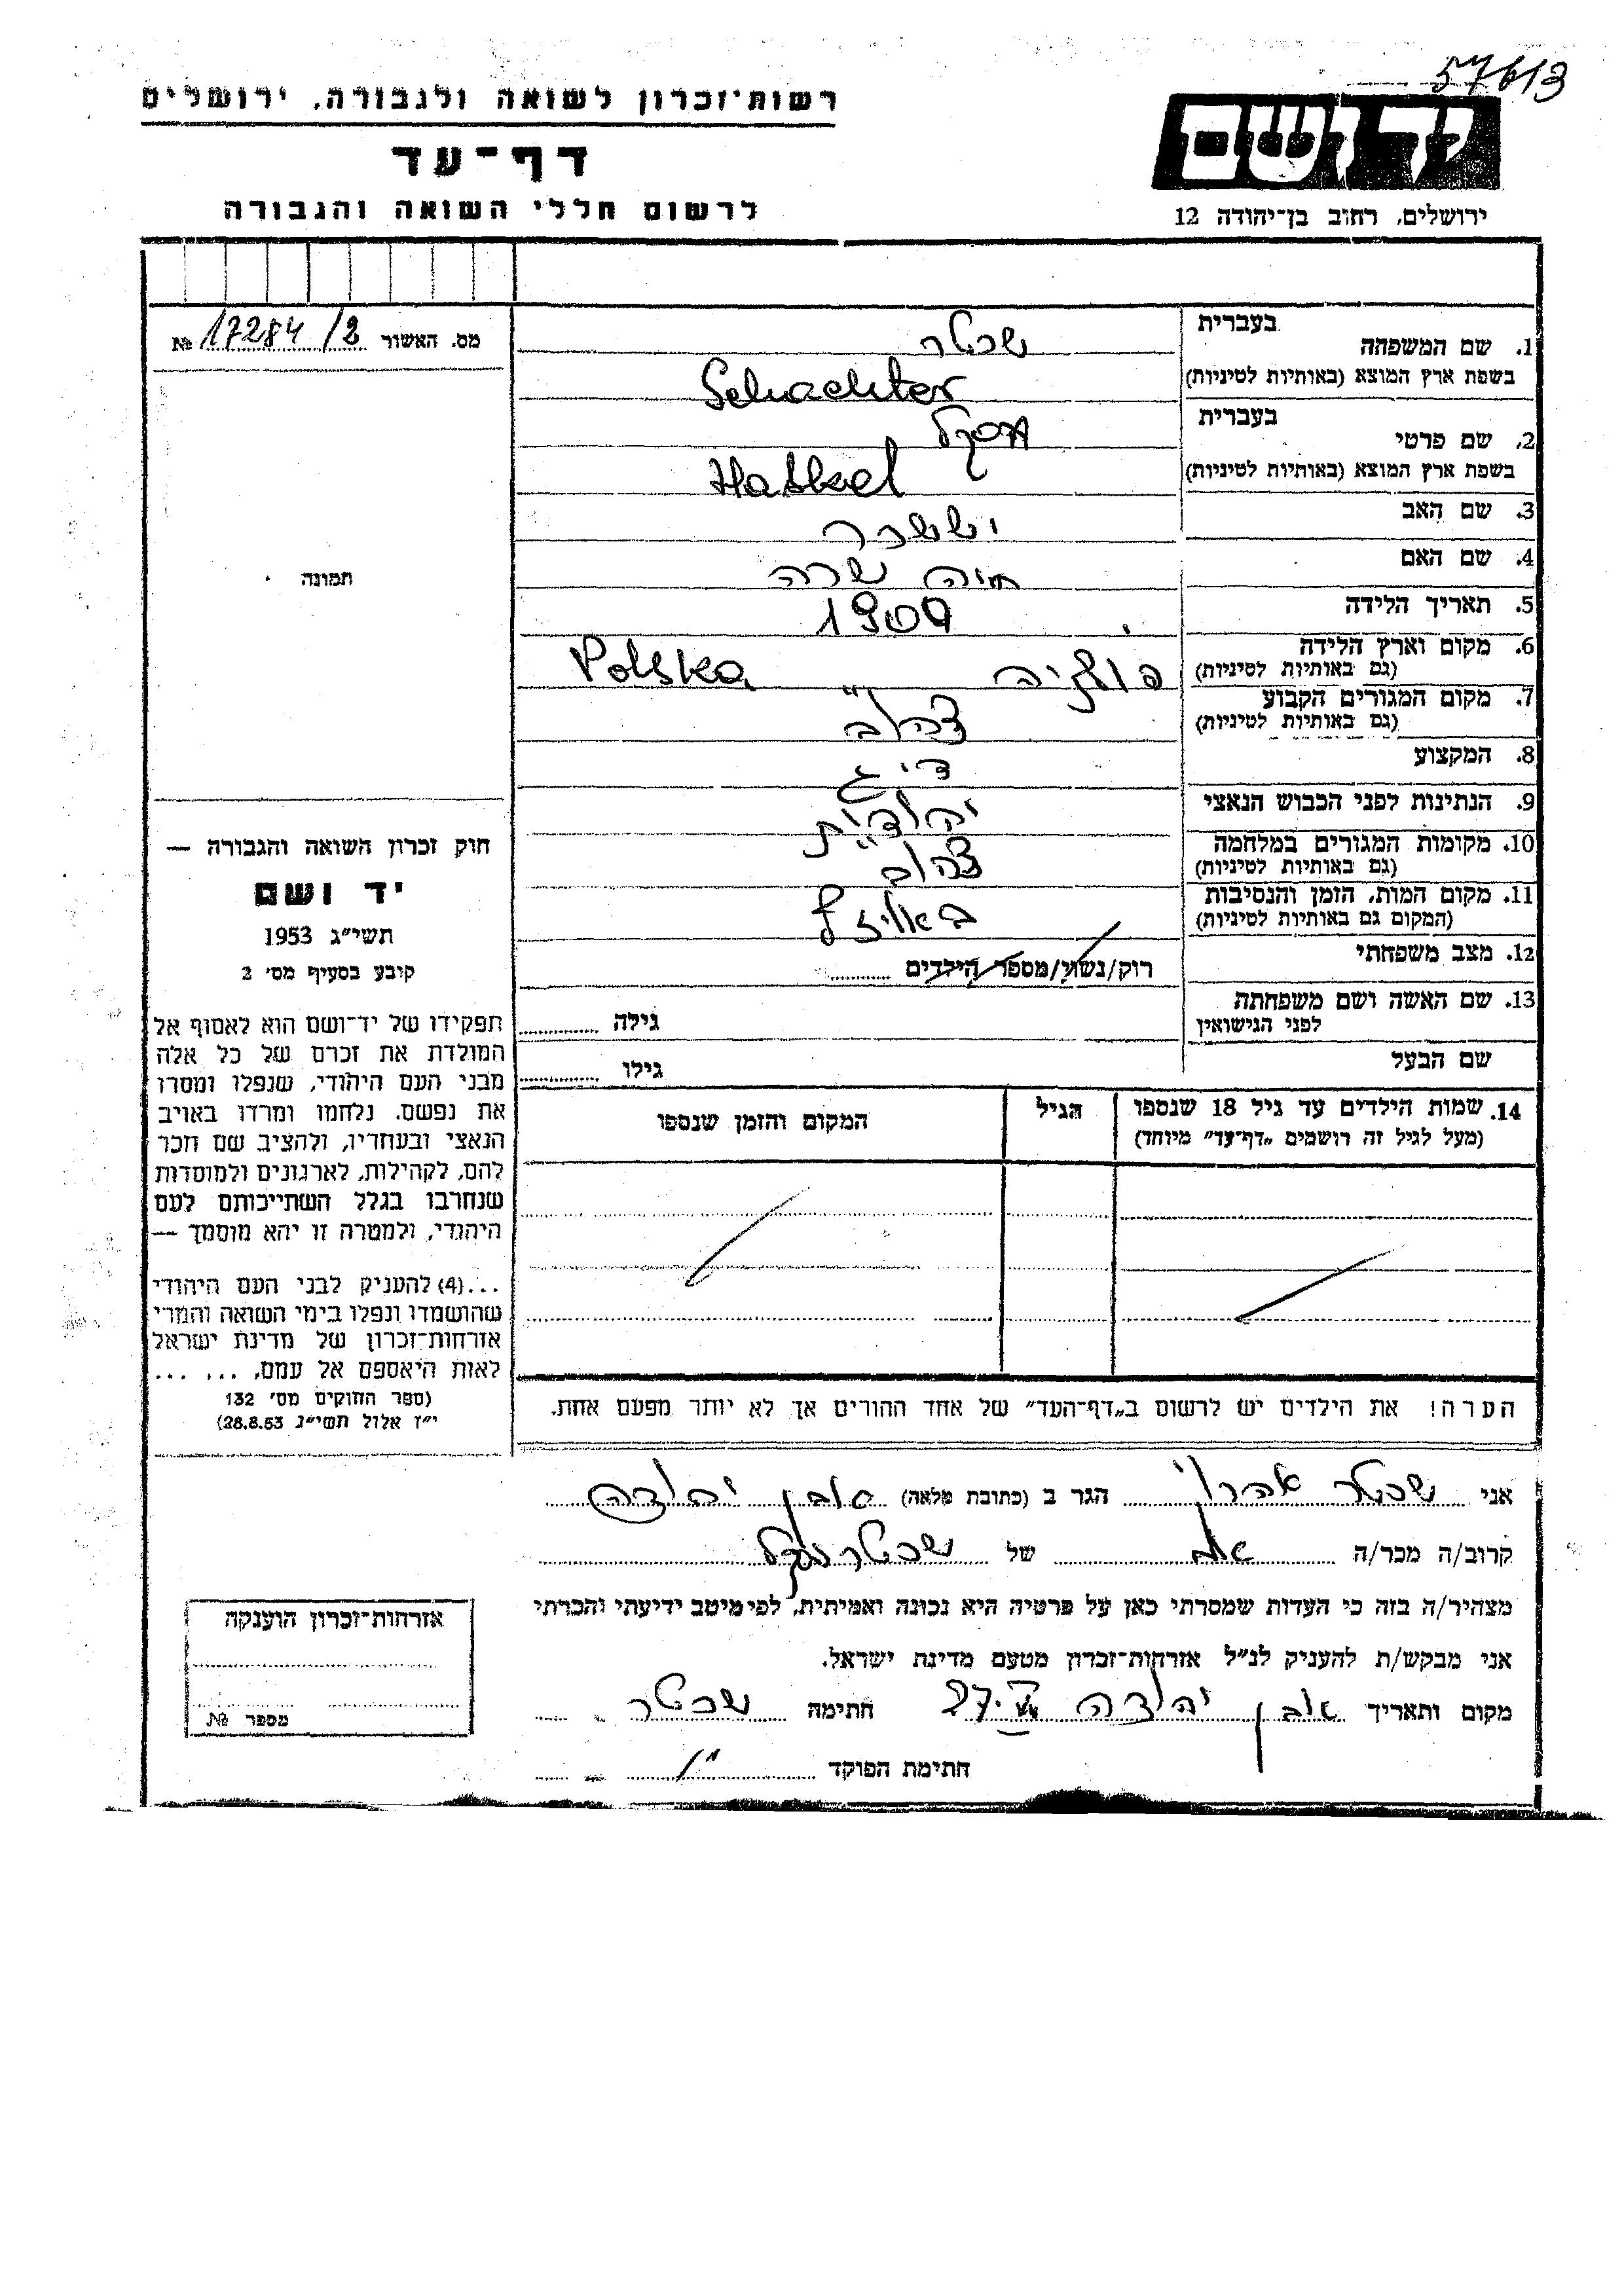 57613
רשות־זכרון לשואה ולגבורה, ירושלים
דף־עד
לרשום חללי השואה והגבורה
יד ושם
ירושלים, רחוב בן־יהודה 12
מס. האשור 17284/2 №
תמונה
חוק זכרון השואה והגבורה —
יד ושם
תשי״ג 1953
קובע בסעיף מס׳ 2
תפקידו של יד־ושם הוא לאסוף אל
המולדת את זכרם של כל אלה
מבני העם היהודי, שנפלו ומסרו
את נפשם, נלחמו ומרדו באויב
הנאצי ובעוזריו, ולהציב שם וזכר
להם, לקהילות, לארגונים ולמוסדות
שנחרבו בגלל השתייכותם לעם
היהודי, ולמטרה זו יהא מוסמך —
...(4) להעניק לבני העם היהודי
שהושמדו ונפלו בימי השואה והמרי
אזרחות־זכרון של מדינת ישראל
לאות היאספם אל עמם. ... ...
(ספר החוקים מס׳ 132
י״ז אלול תשי״ג 28.8.53)
בעברית
1. שם המשפחה שכטר
בשפת ארץ המוצא (באותיות לטיניות) Schachter
בעברית
2. שם פרטי חסקל
בשפת ארץ המוצא (באותיות לטיניות) Haskel
3. שם האב יששכר
4. שם האם חיה שרה
5. תאריך הלידה 1909
6. מקום וארץ הלידה פולניה Polska
(גם באותיות לטיניות)
7. מקום המגורים הקבוע
(גם באותיות לטיניות)
8. המקצוע
9. הנתינות לפני הכבוש הנאצי יהודית
10. מקומות המגורים במלחמה
(גם באותיות לטיניות)
11. מקום המות, הזמן והנסיבות
(המקום גם באותיות לטיניות)
12. מצב משפחתי רוק/נשוי/מספר הילדים
13. שם האשה ושם משפחתה גילה
לפני הנישואין
שם הבעל גילו
14. שמות הילדים עד גיל 18 שנספו הגיל המקום והזמן שנספו
(מעל לגיל זה רושמים „דף־עד״ מיוחד)
הערה! את הילדים יש לרשום ב„דף־העד״ של אחד ההורים אך לא יותר מפעם אחת.
אני שכטר אהרון הגר ב (כתובת מלאה) אבן יהודה
קרוב/ה מכר/ה של שכטר חסקל
מצהיר/ה בזה כי העדות שמסרתי כאן על פרטיה היא נכונה ואמיתית, לפי מיטב ידיעתי והכרתי
אני מבקש/ת להעניק לנ״ל אזרחות־זכרון מטעם מדינת ישראל.
מקום ותאריך אבן יהודה חתימה שכטר
חתימת הפוקד
אזרחות־זכרון הוענקה
מספר №